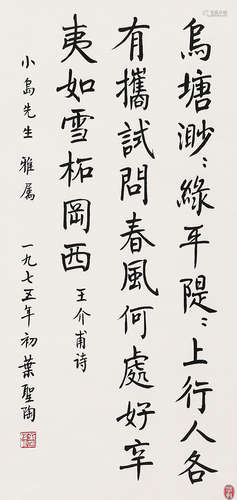 烏塘渺〻綠平隄〻上行人各
有攜試問春風何處好辛
夷如雪柘岡西 王介甫诗
小島先生 雅属 一九七五年初葉聖陶